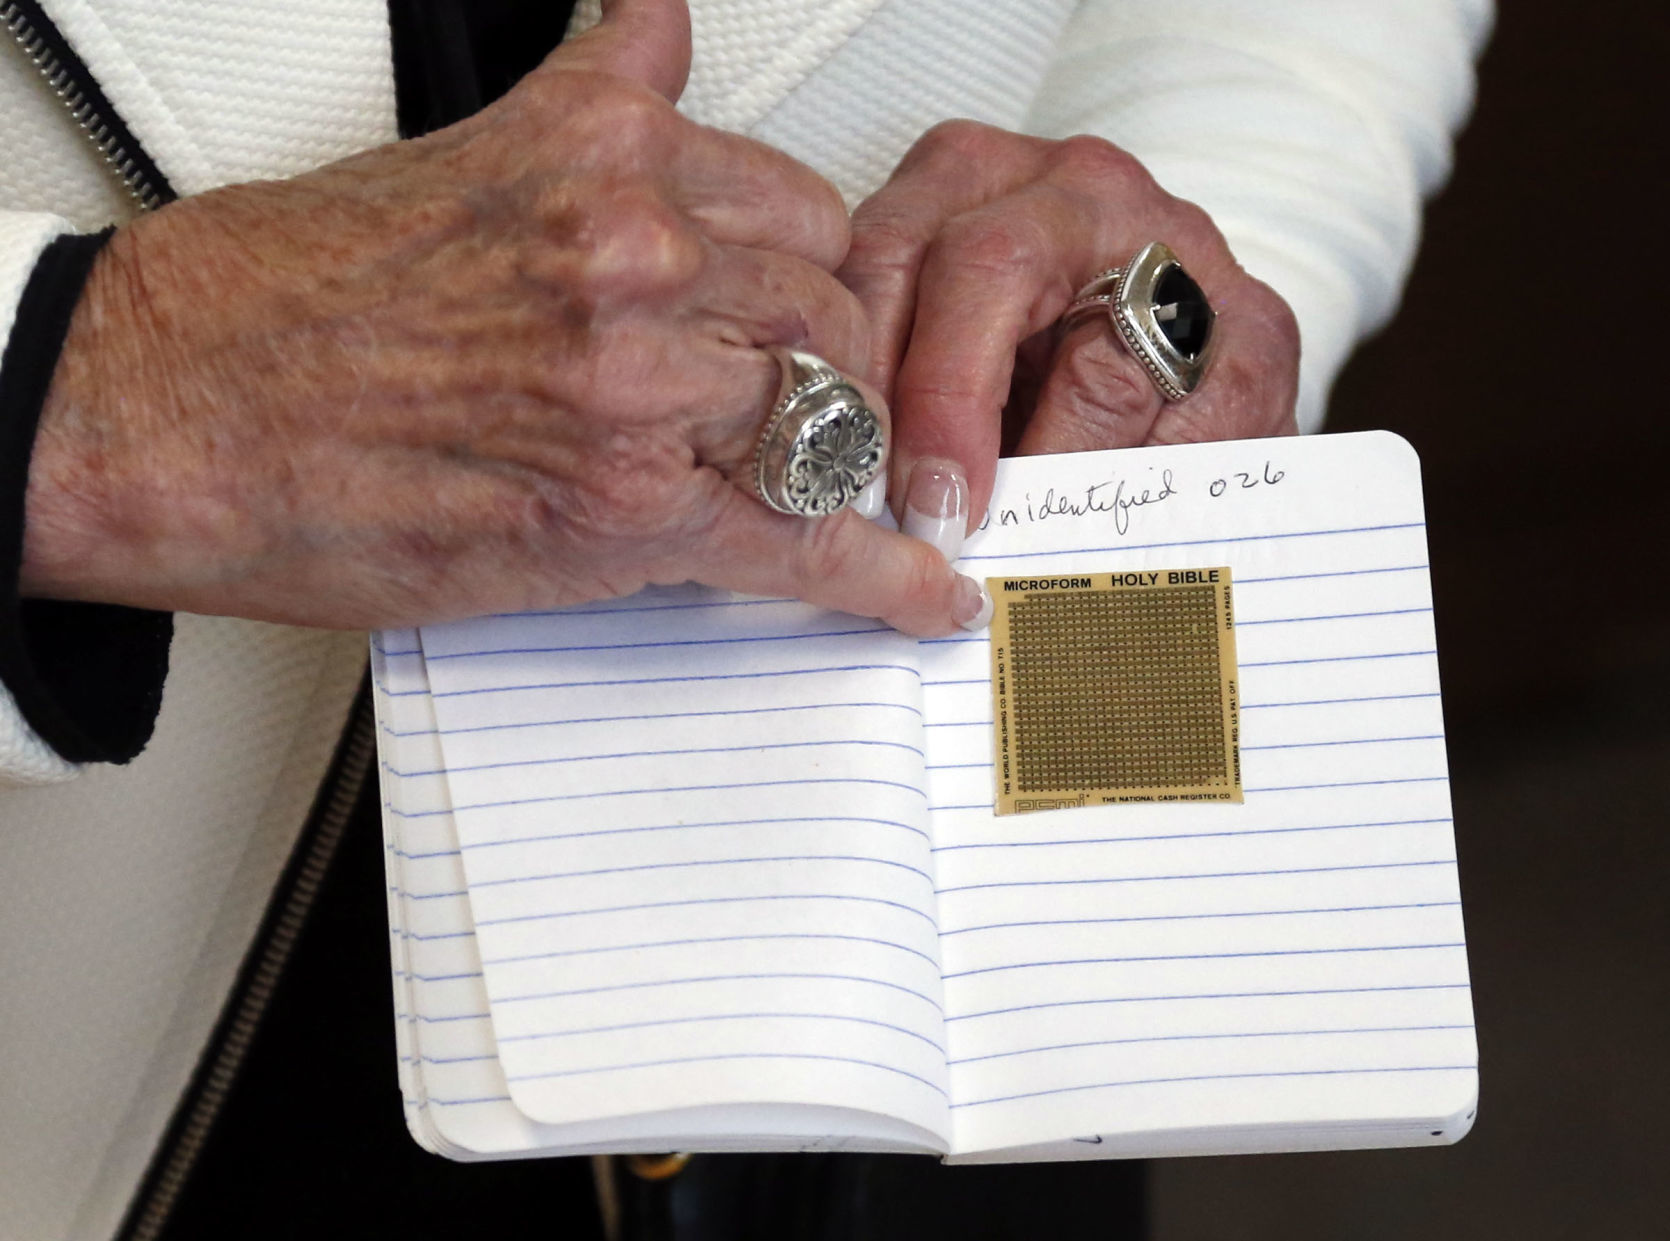 Unidentified 026
MICROFORM HOLY BIBLE
1245 PAGES
THE WORLD PUBLISHING CO. BIBLE NO. 715
TRADEMARK REG. U.S. PAT. OFF.
pcmi THE NATIONAL CASH REGISTER CO.